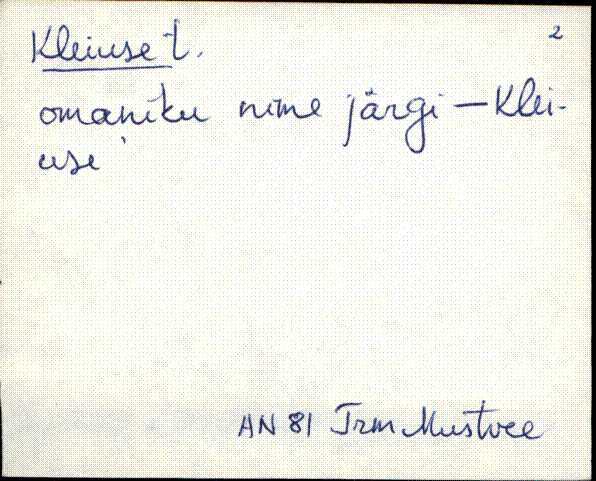 2
Kleiuse t.
omaniku nime järgi — Klei-
use
AN 81 Trm Mustvee